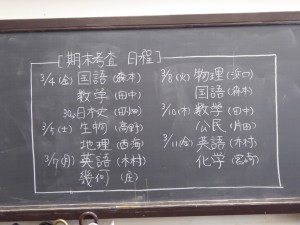 [期末考査 日程]
3/4(金) 国語(森本)
数学(田中)
日本史(田畑)
3/5(土) 生物(高野)
地理(西海)
3/7(月) 英語(木村)
幾何(庄)
3/8(火) 物理
国語(森本)
3/10(木) 数学(田中)
公民
3/11(金) 英語(木村)
化学(宮崎)